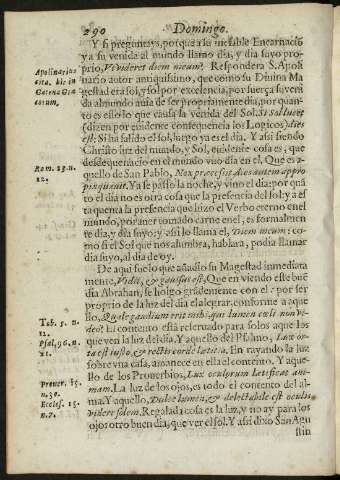 290 Domingo.
Y si preguntays, porque a su inefable Encarnació
y a su venida al mundo llamo dia, y dia suyo pro-
prio, Vt videret diem meum? Respondera S. Apoli
Apolinarius
nario autor antiquissimo, que como su Diuina Ma
cita. hic in
gestad era sol, y sol por excelencia, por fuerça su veni
Catena Græ
da al mundo auia de ser propriamente dia, por quan-
corum.
to es esso lo que causa la venida del Sol. Si sol lucet
(dizen por euidente consequencia los Logicos) dies
est: Si ha salido el sol, luego ya es el dia. Y assi siendo
Christo luz del mundo, y Sol, euidente cosa es, que
desde que nacio en el mundo vuo dia en el. Que es a-
Rom. 13. n.
quello de san Pablo, Nox præcessit dies autem appro
12.
pinquauit. Ya se passo la noche, y vino el dia: por quã
to el dia no es otra cosa que la presencia del sol: y a es
ta quenta la presencia que hizo el Verbo eterno en el
mundo, por auer tomado carne en el, es formalmen
te dia, y dia suyo: y assi lo llama el, Diem meum: co-
mo si el Sol que nos alumbra, hablara, podia llamar
dia suyo, al dia de oy.
De aqui fue lo que añadio su Magestad inmediata
mente, Vidit, & gauisus est, Que en viendo este buẽ
dia Abrahan, se holgo grandemente con el: por ser
proprio de la luz del dia el alegrar, conforme a aque
llo, Quale gaudium erit mihi, qui lumen cœli non vi-
Tob. 5. n.
deo? El contento està reseruado para solos aque los
12.
que ven la luz del dia. Y aquello del Psalmo, Lux or-
Psal. 96. n.
ta est iusto, & rectis corde lætitia. En rayando la luz
11.
sobre vna casa, amanece en ella el contento. Y aque-
llo de los Prouerbios, Lux oculorum lætificat ani-
Prouer. 15.
mam. La luz de los ojos, es todo el contento del al-
n. 30.
ma. Y aquello, Dulce lumen, & delectabile est oculis
Eccles. 11.
videre solem. Regalada cosa es la luz, y no ay para los
n. 7.
ojos otro buen dia, que ver el sol. Y assi dixo San Agu
stin